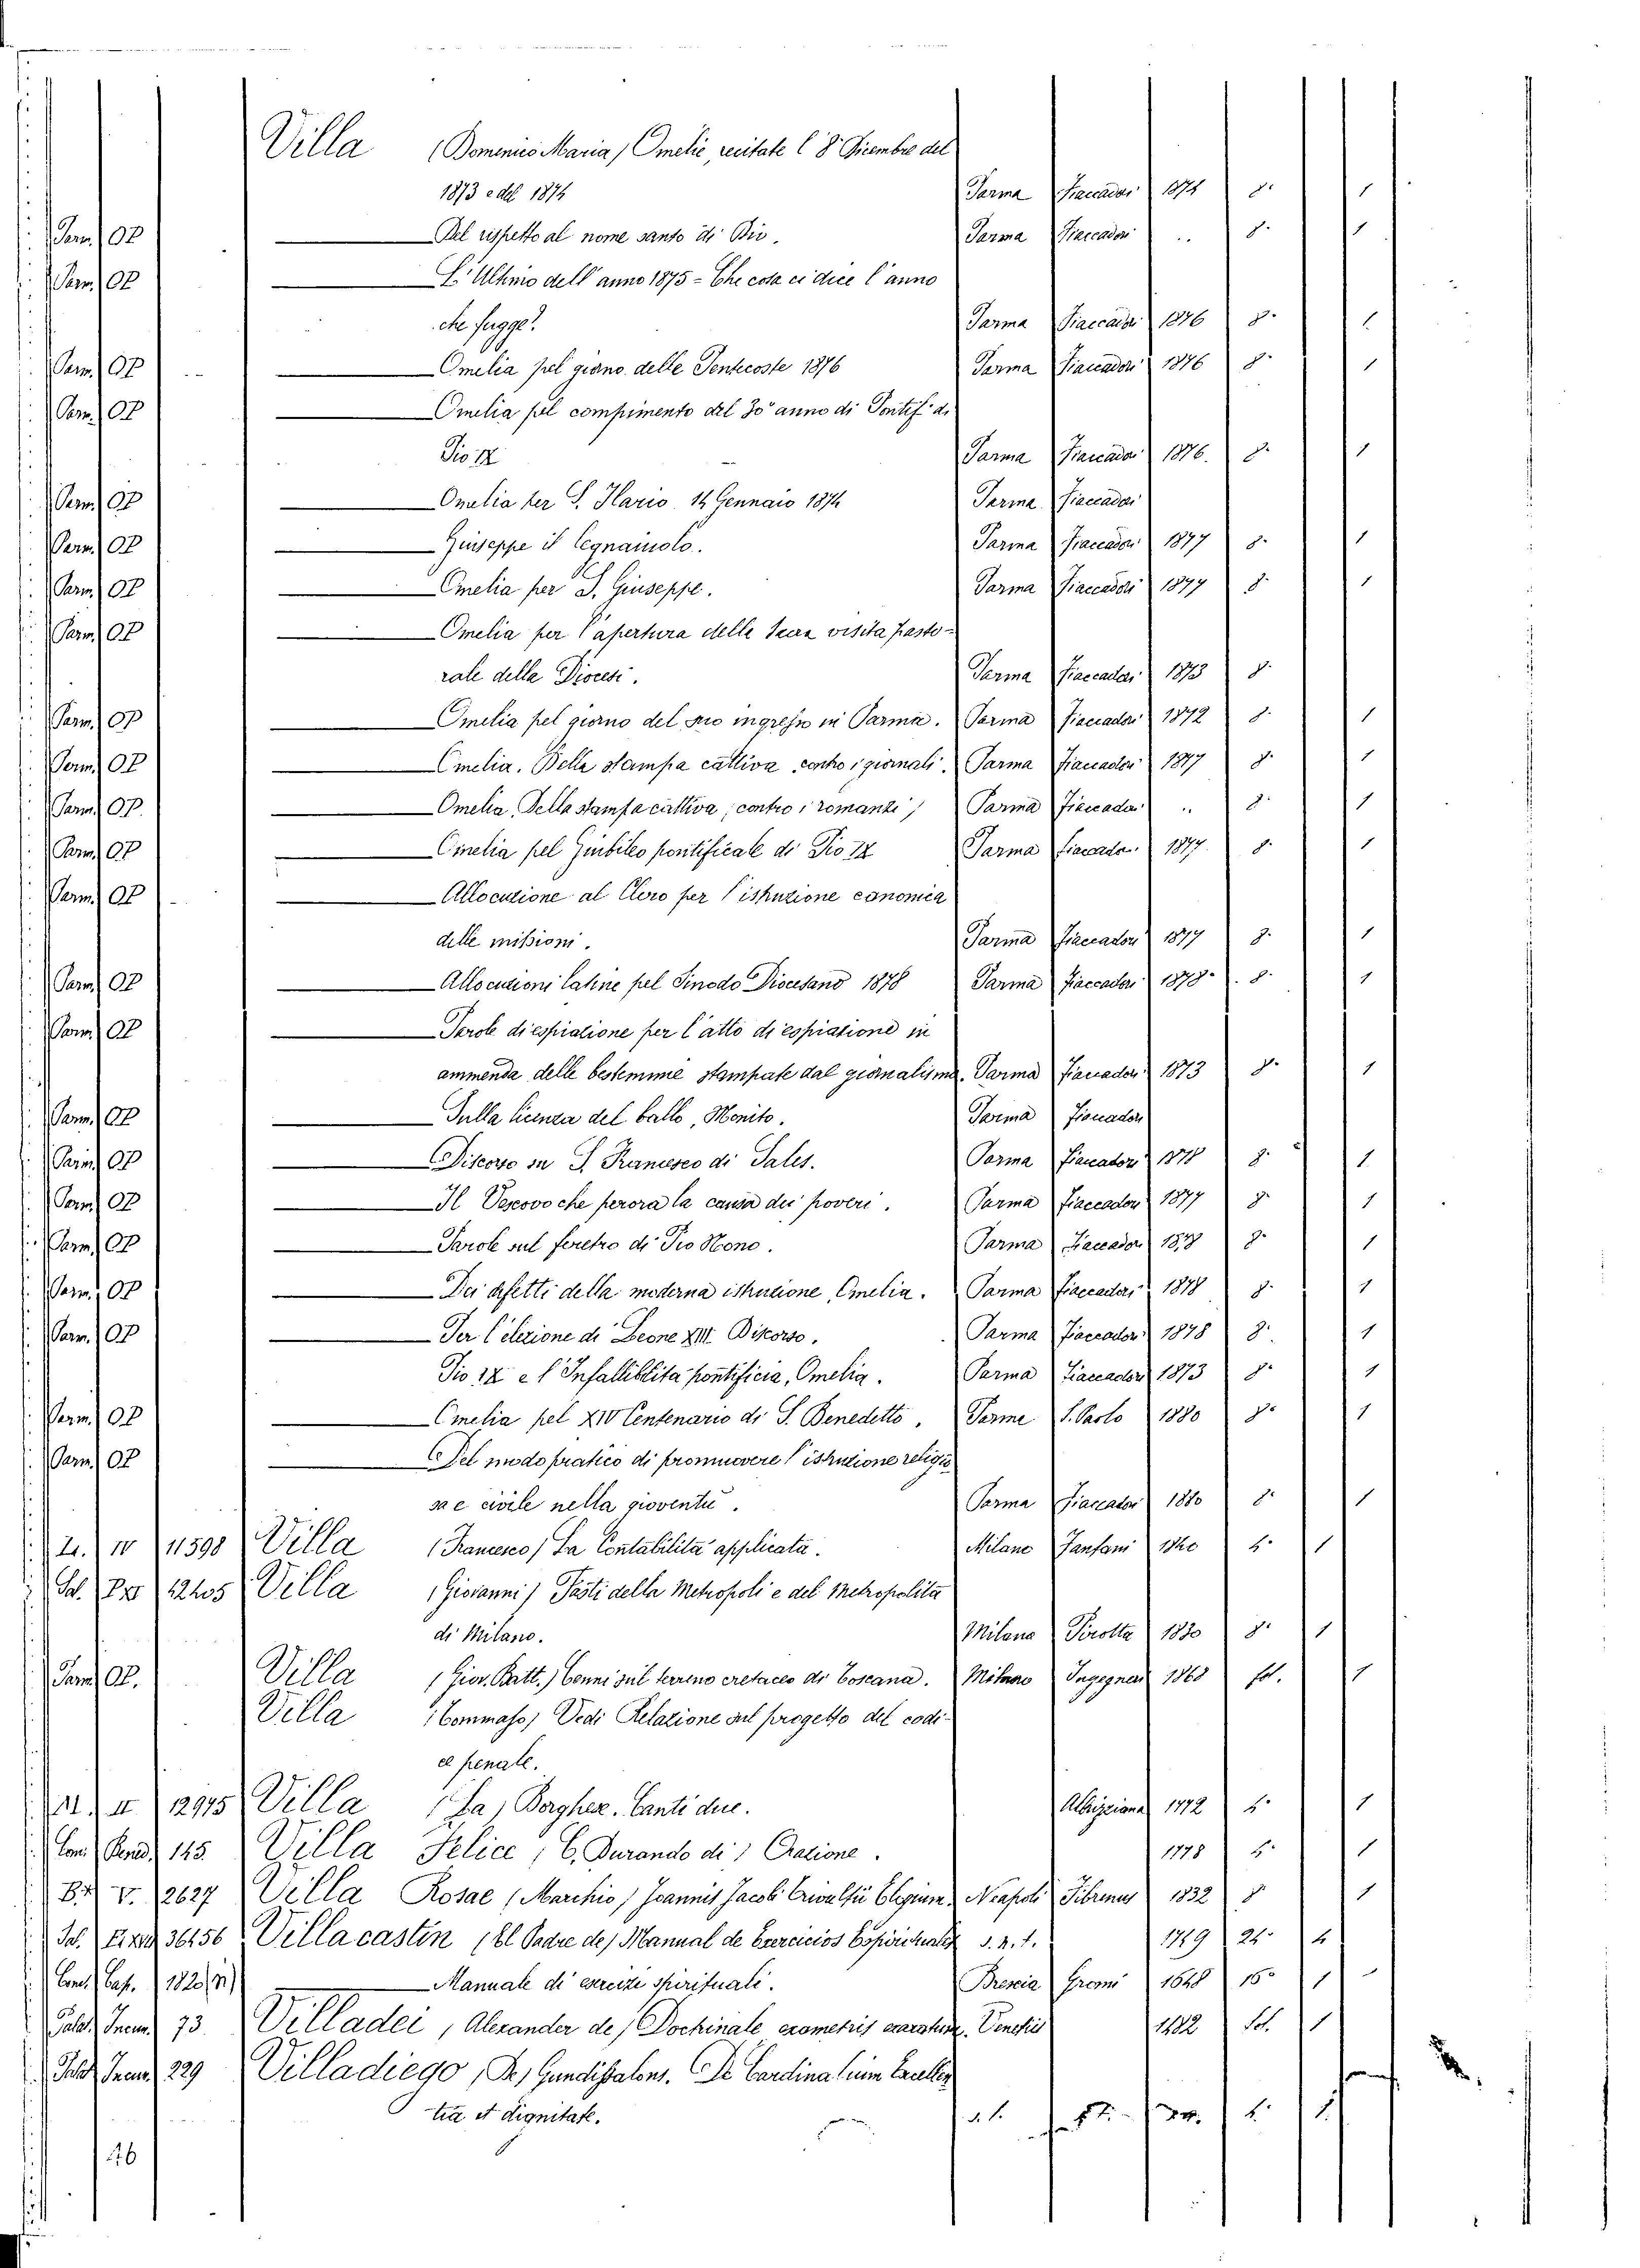 Villa (Domenico Maria) Omelie, recitate l'8 Dicembre del
1873 e del 1874 Parma Fiaccadori 1874 8° 1
Parm. OP Del rispetto al nome santo di Dio. Parma Fiaccadori .. 8° 1
Parm. OP L'Ultimo dell'anno 1875 = Che cosa ci dice l'anno
che fugge? Parma Fiaccadori 1876 8° 1
Parm. OP Omelia pel giorno delle Pentecoste 1876 Parma Fiaccadori 1876 8° 1
Parm. OP Omelia pel compimento del 30° anno di Pontif. di
Pio IX Parma Fiaccadori 1876. 8° 1
Parm. OP Omelia per S. Ilario 14 Gennaio 1874 Parma Fiaccadori
Parm. OP Giuseppe il legnaiuolo. Parma Fiaccadori 1877 8° 1
Parm. OP Omelia per S. Giuseppe. Parma Fiaccadori 1877 8° 1
Parm. OP Omelia per l'apertura della sacra visita pasto-
rale della Diocesi. Parma Fiaccadori 1873 8°
Parm. OP Omelia pel giorno del suo ingresso in Parma. Parma Fiaccadori 1872 8° 1
Parm. OP Omelia. Della stampa cattiva contro i giornali. Parma Fiaccadori 1877 8° 1
Parm. OP. Omelia, Della stampa cattiva, contro i romanzi, Parma Fiaccadori .. 8° 1
Parm. OP Omelia pel Giubileo pontificale di Pio IX Parma Fiaccadori 1877. 8° 1
Parm. OP Allocuzione al Clero per l'istruzione canonica
delle missioni. Parma Fiaccadori 1877 8° 1
Parm. OP Allocuzioni latine pel Sinodo Diocesano 1878 Parma Fiaccadori 1878 8° 1
Parm. OP Parole di espiazione per l'atto di espiazione in
ammenda delle bestemmie stampate dal giornalismo. Parma Fiaccadori 1873 8° 1
Parm. OP Sulla licenza del ballo, Monito. Parma Fiaccadori
Parm. OP Discorso su S. Francesco di Sales. Parma Fiaccadori 1878 8° 1
Parm. OP Il Vescovo che perora la causa dei poveri. Parma Fiaccadori 1877 8° 1
Parm. OP Parole sul feretro di Pio Nono. Parma Fiaccadori 1878 8° 1
Parm. OP Dei difetti della moderna istruzione, Omelia. Parma Fiaccadori 1878 8° 1
Parm. OP Per l'elezione di Leone XIII. Discorso. Parma Fiaccadori 1878 8° 1
Pio IX e l'Infallibilità pontificia, Omelia. Parma Fiaccadori 1873 8° 1
Parm. OP Omelia pel XIV Centenario di S. Benedetto. Parma S. Paolo 1880 8° 1
Parm. OP Del modo pratico di promuovere l'istruzione religio
sa e civile nella gioventù. Parma Fiaccadori 1880 8° 1
IV 11598 Villa (Francesco) La Contabilità applicata. Milano Fanfani 1840 4° 1
12405 Villa (Giovanni) Fasti della Metropoli e del Metropolita
di Milano. Milano Pirotta 1830 8° 1
Parm. OP. Villa (Giov. Batt.) Cenni sul terreno cretaceo di Toscana. Milano Ingegneri 1868 fol. 1
Villa (Tommaso) Vedi Relazione sul progetto del codi-
ce penale.
II 12975 Villa (La) Borghes. Canti due. Albrizziana 1772 4° 1
Con. Bened. 145. Villa Felice (C. Durando di) Orazione. 1778 4° 1
V. 12627 Villa Rosae (Marchio) Joannis Jacobi Trivultii Elogium. Neapoli Fibrenus 1832 8° 1
36456 Villacastin (El Padre de) Manual de Exercicios Espirituales s. n. t. 1719 24° 1
Conv. Cap. 1820 Manuale di esercizi spirituali. Brescia Gromi 1648 16° 1
Palat. Incun. 73 Villadei (Alexander de) Doctrinale exametris exaratum. Venetiis 1482 fol. 1
Palat. Incun. 229 Villadiego (De) Gundissalvus. De Cardinalium Excellen
tia et dignitate. s. l. 4° 1
46